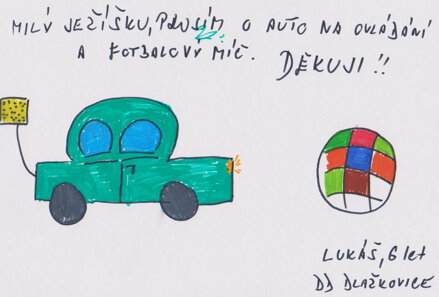 MILÝ JEŽÍŠKU, PROSÍM O AUTO NA OVLÁDÁNÍ
A FOTBALOVÝ MÍČ. DĚKUJI!!
LUKÁŠ, 6 let
DD DLAŽKOVICE